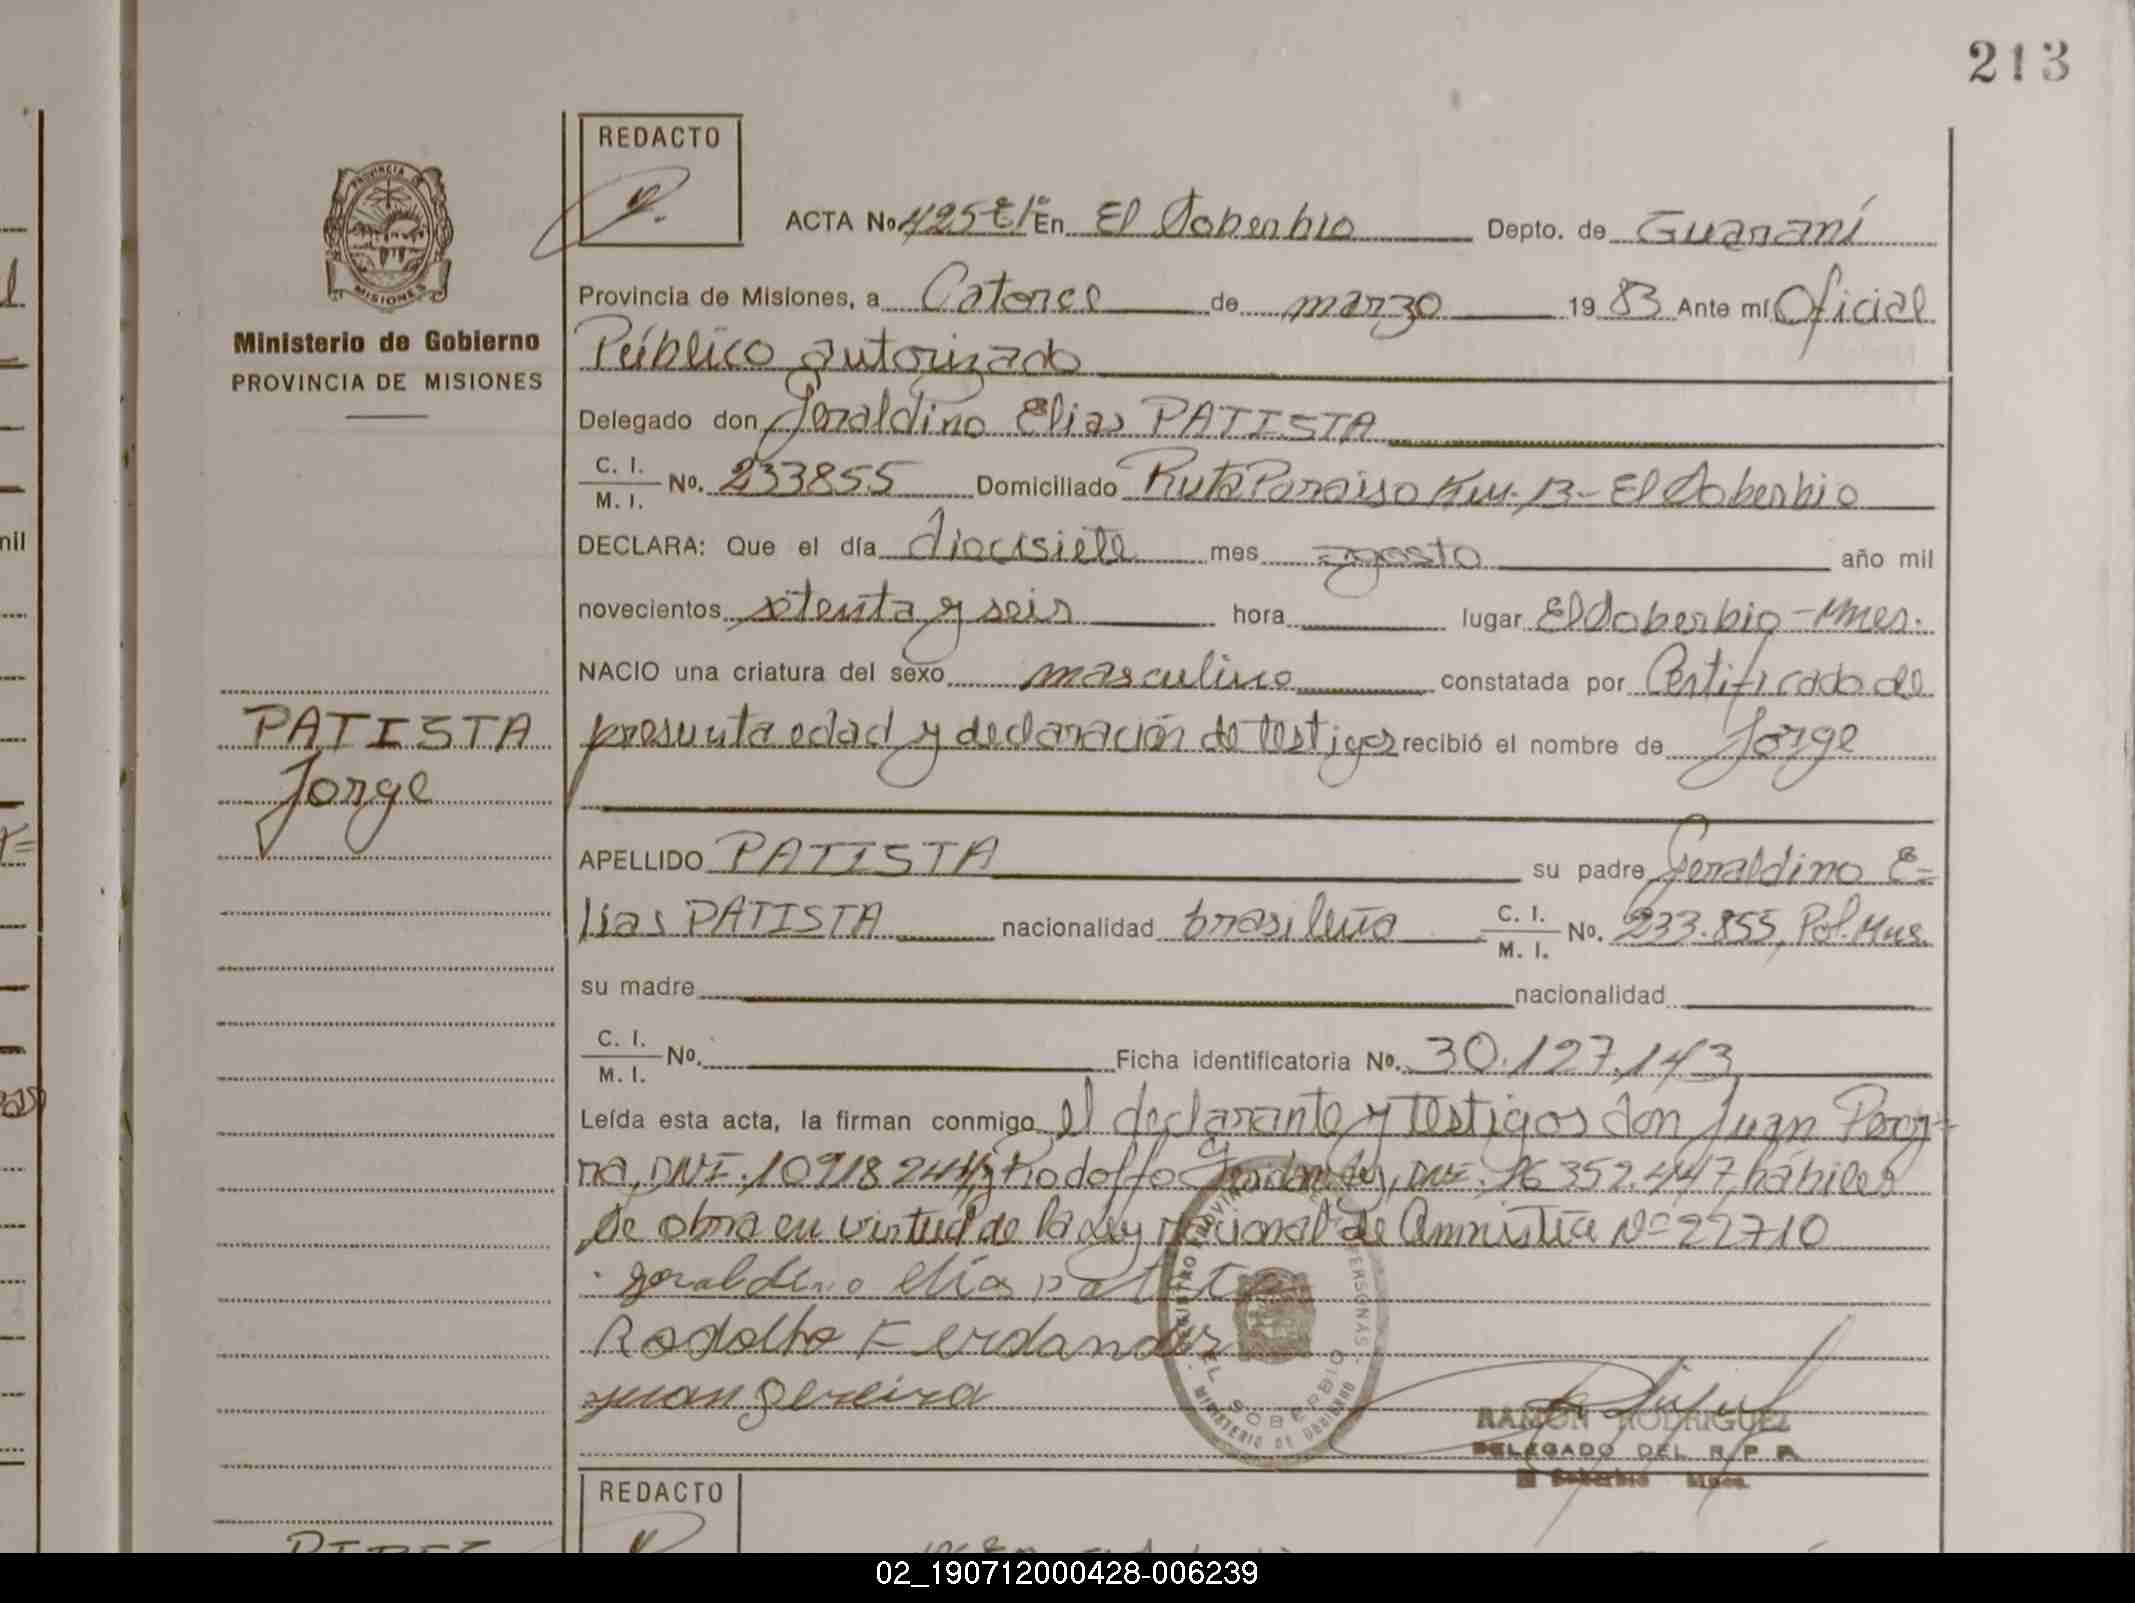 213
REDACTO
ACTA No 425 En El Soberbio Depto. de Guaraní
PROVINCIA DE
MISIONES
Provincia de Misiones, a Catorce de marzo 1983 Ante mí Oficial
Ministerio de Gobierno
PROVINCIA DE MISIONES
Público autorizado
Delegado don Geraldino Elias PATISTA
C. I.
M. I. No. 233855 Domiciliado Ruta Paraiso Km. 13 - El Soberbio
DECLARA: Que el día diecisiete mes agosto año mil
novecientos setenta y seis hora lugar El Soberbio - Mnes.
NACIO una criatura del sexo masculino constatada por Certificado de
PATISTA
Jorge
presunta edad y declaración de testigos recibió el nombre de Jorge
APELLIDO PATISTA su padre Geraldino E=
lias PATISTA nacionalidad brasileña C. I.
M. I. No. 233.855, Pol. Mns.
su madre nacionalidad
C. I.
M. I. No. Ficha identificatoria No. 30.127.143
Leída esta acta, la firman conmigo el declarante y testigos don Juan
DNI. y Rodolfo DNI. 16352.447, hábiles
Se obra en virtud de la Ley Nacional de Amnistía Nº 22710
geraldino elias patista
Rodolfo Ferdandes
juan pereira
EL SOBERBIO
MINISTERIO DE GOBIERNO
RAMON RODRIGUEZ
DELEGADO DEL R. P. P.
El Soberbio Mnes.
REDACTO
02_190712000428-006239